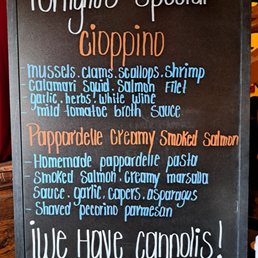 Tonight's Special
Cioppino
mussels. clams. scallops. shrimp
- Calamari Squid. Salmon Filet
- garlic. herbs. white wine
- mild tomatoe broth sauce
Pappardelle Creamy Smoked Salmon
- Homemade pappardelle pasta
- Smoked Salmon. Creamy marsalla
Sauce. garlic. capers. asparagus
- Shaved pecorino parmesan
¡We Have Cannolis!